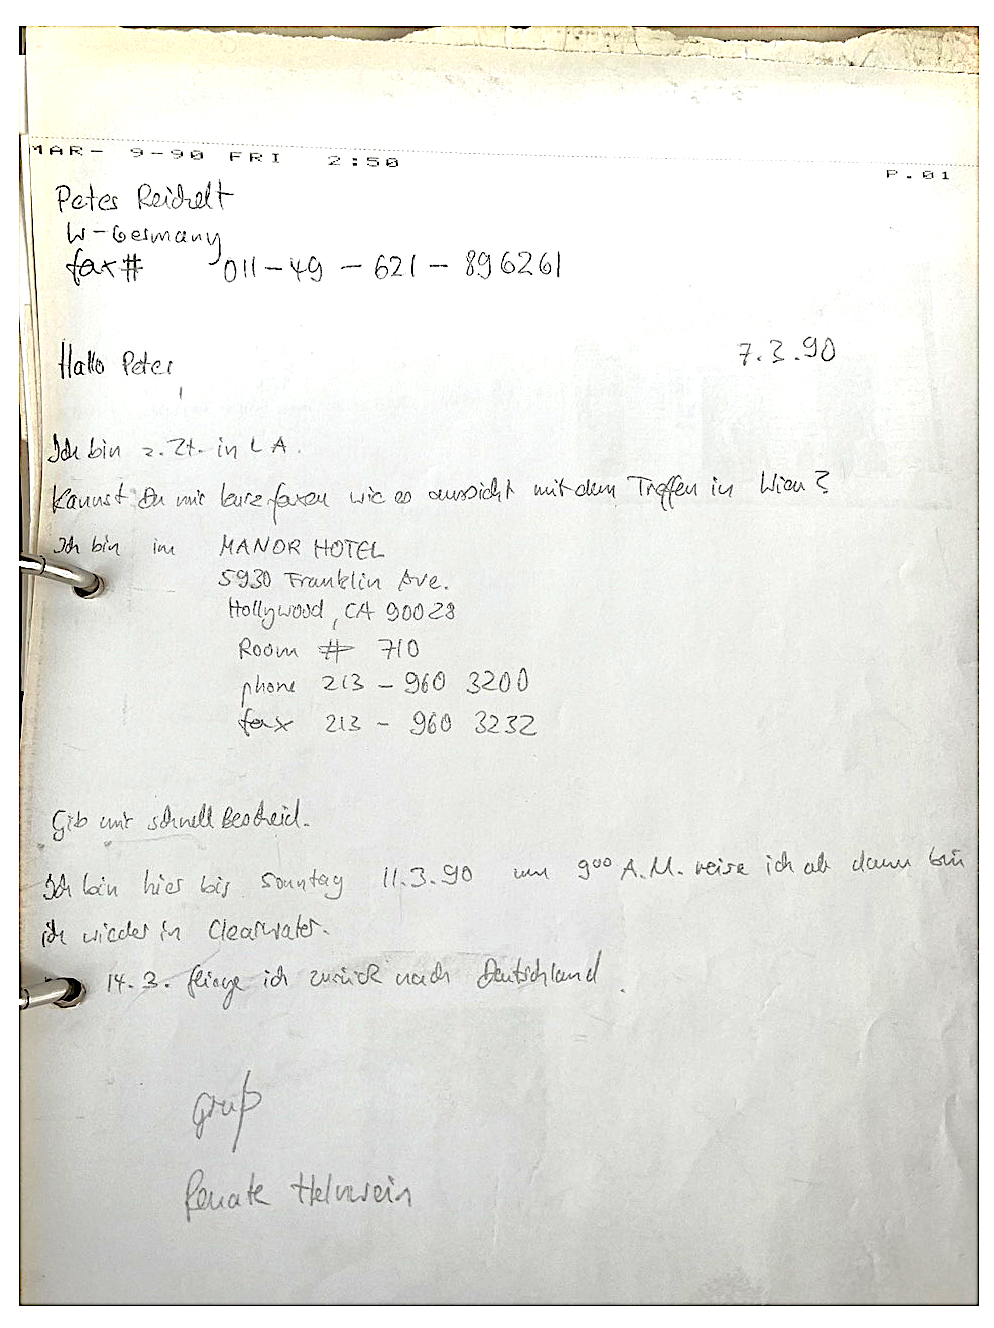 MAR- 9-90 FRI 2:50 P.01
Peter Reichelt
W-Germany
fax# 011-49-621-896261
7.3.90
Hallo Peter,
Ich bin z.Zt. in LA.
Kannst Du mir kurz faxen wie es aussieht mit dem Treffen in Wien?
Ich bin im MANOR HOTEL
5930 Franklin Ave.
Hollywood, CA 90028
Room # 710
phone 213-960 3200
fax 213-960 3232
Gib mir schnell Bescheid.
Ich bin hier bis Sonntag 11.3.90 um 9⁰⁰ A.M. reise ich ab dann bin
ich wieder in Clearwater.
14.3. fliege ich zurück nach Deutschland.
gruß
Renate Helnwein